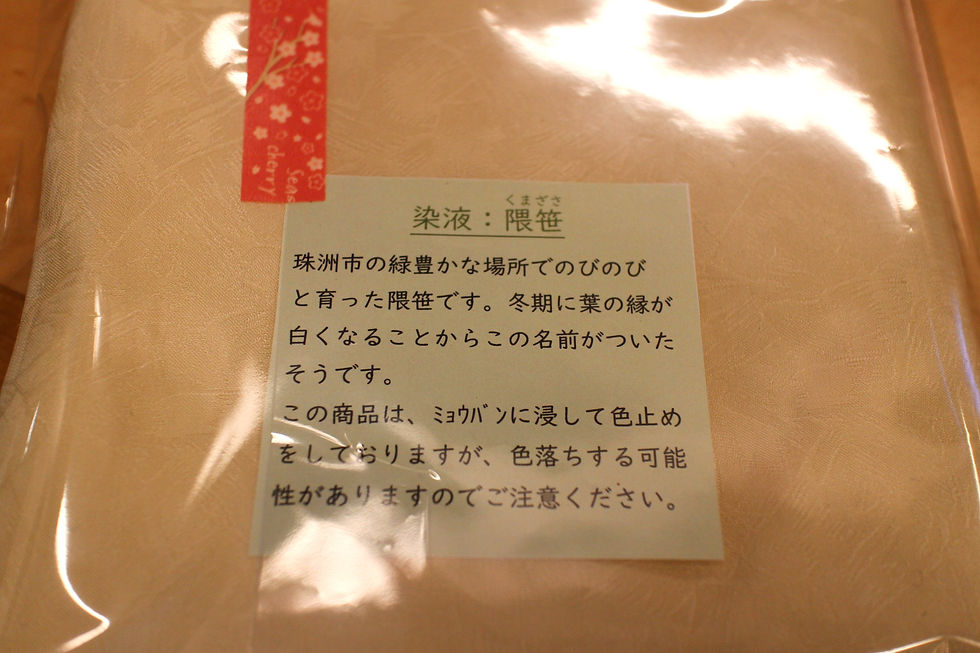 cherry
くまざさ
染液：隈笹
珠洲市の緑豊かな場所でのびのび
と育った隈笹です。冬期に葉の縁が
白くなることからこの名前がついた
そうです。
この商品は、ﾐｮｳﾊﾞﾝに浸して色止め
をしておりますが、色落ちする可能
性がありますのでご注意ください。